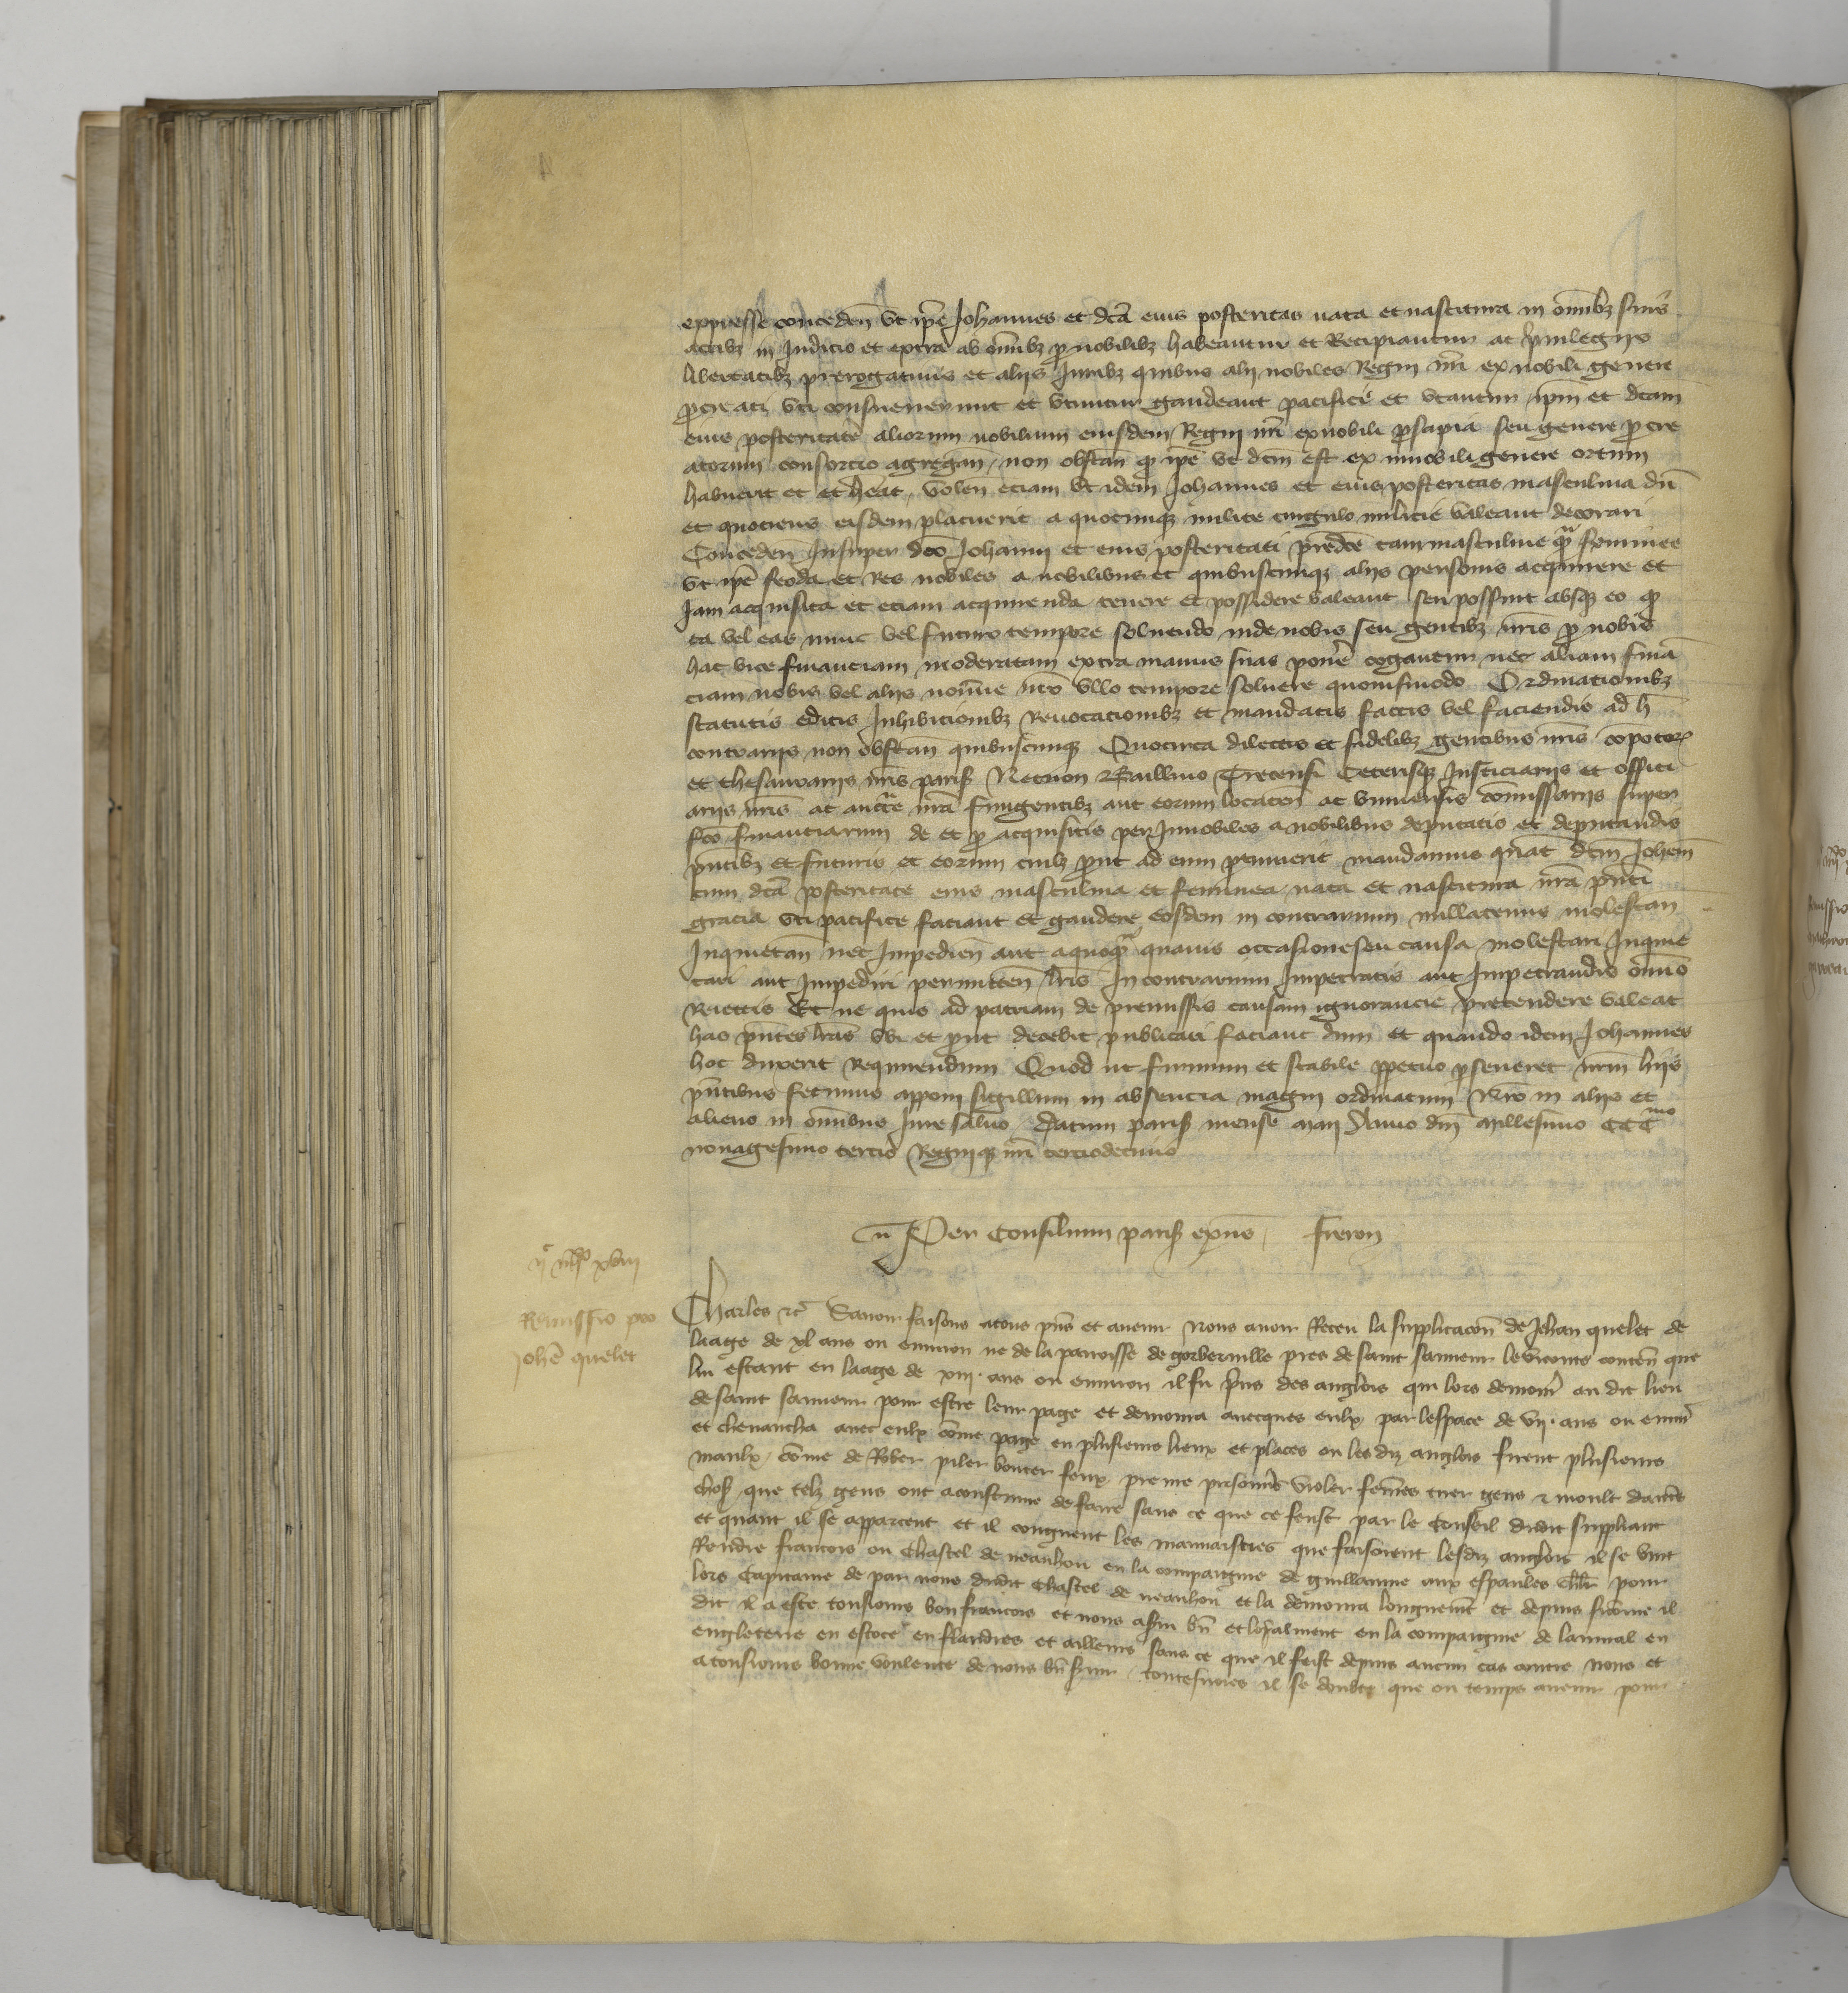 expresse conceden̄ vt ip̄e Johannes et dc̄a eius posteritas nata et nascitura in om̄ibȝ suis
actibȝ in Judicio et extra ab om̄ibȝ ꝓ nobilibȝ habeantur et Recipiantur ac p̄uilegijs
libertatibȝ prerogatiuis et alijs Juribȝ quibus alij nobiles Regni nr̄i ex nobili genere
ꝓcreati vti consueuerunt et vtuntur gaudeant pacifice et vtantur ip̄m et dc̄am
eius posteritatē aliorum nobilium eiusdem Regni nr̄i ex nobili ꝓsapia seu genere ꝓcre
atorum consorcio agregan̄ non obstan̄ ꝙ ip̄e vt dc̄m est ex innobili genere ortum
habuerit et et h̄eat volen̄ eciam vt idem Johannes et eius posteritas masculina dū
et quociens eisdem placuerit a quocunqȝ milite cingulo milicie valeant decorari
Conceden̄ Insuper dc̄o Johanni et eius posteritati p̄redc̄e tam masculine qͣ feminee
vt ip̄e feoda et Res nobiles a nobilibus et quibuscunqȝ alijs personis acquirere et
Jam acquisita et eciam acquirenda tenere et possidere valeant seu possint absqȝ eo ꝙ
ea vel eas nunc vel futuro tempore soluendo inde nobis seu gentibȝ nr̄is ꝓ nobis
hac vice financiam moderatam extra manus suas ponēr cogantur nec aliam finā
ciam nobis vel alijs noīe nr̄o vllo tempore soluere quouismodo Ordinationibȝ
statutis editis Inhibitionibȝ Reuocationibȝ et mandatis factis vel faciendis ad h̄
contrarijs non obstan̄ quibuscunqȝ Quocirca dilectis et fidelibȝ gentibus nr̄is compotoꝝ
et thesaurarijs nr̄is parisꝭ Necnon Baillivo Trecensi Ceterisqȝ Justiciarijs et offici
arijs nr̄is ac auctͤ nr̄a fungentibȝ aut eorum locaten̄ ac vniuersis commissarijs super
fc̄o financiarum de et ꝓ acquisitis per Innobiles a nobilibus deputatis et deputandis
p̄ntibȝ et futuris et eorum cuilȝ ꝓut ad eum ꝑtinuerit mandamus qͣt dc̄m Johem̄
cum dc̄a posteritate eius masculina et feminea nata et nascitura nr̄a p̄nti
gracia vti pacifice faciant et gaudere eosdem in contrarium nullatenus molestan̄
Inquietan̄ nec Impedien̄ aut a quoqͣ quauis occasione seu causa molestari Inquie
tari aut Impediri permitten̄ lr̄is In contrarium Impetratis aut Impetrandis om̄o
Reiectis Et ne quis ad patriam de premissis causam ignorancie pretendere valeat
has p̄ntes lr̄as vbi et ꝓut decebit publicari faciant dum et quando idem Johannes
hoc duxerit Requirendum Quod ut firmum et stabile ꝑpetuo ꝑseueret nr̄m hijs
p̄ntibus fecimus apponi sigillum in absencia magni ordinatum Nr̄o in alijs et
alieno in om̄ibus Jure saluo Datum parisꝭ mense maij Anno dn̄i millesimo CCCᵐᵒ
nonagesimo tercio Regniqȝ nr̄i terciodecimo
Per Consilium parisꝭ exn̄s freron
ijᶜ iiijˣˣ xviij
Remissio pro
Johe quelet
Charles etc̄ Sauoir faisons atous pn̄s et auenir Nous auoir Receu la supplicacōn de Jehan quelet de
laage de xl ans ou enuiron ne de la parroisse de gorberuille pres de saint sauueur leviconte conten̄ que
lui estant en laage de xiij. ans ou enuiron il fu p̄ris des anglois qui lors demorer̄ au dit lieu
de saint sauueur pour estre leur page et demoura auecques eulx par lespace de vij. ans ou enuir̄
et cheuaucha auec eulx cōme page en plusieurs lieux et places ou les diz anglois firent plusieurs
maulx cōme de Rober piler bouter feux prenre prisonniers violer fem̄es tuer gens ⁊ moult dautres
chosꝭ que telx gens ont acoustume de faire sanz ce que ce feust par le Conseil dudit suppliant
et quant il se apparceut et il congneut les mauuaisties que faisoient lesdiz anglois il se vint
Rendre francois ou Chastel de neauhou en la compaignie de guillaume aux espaules chlr̄ pour
lors Capitaine de par nous dudit Chastel de neauhou et la demoura longuemt̄ et depuis sicōme il
dit il a este tousiours bon francois et nous a serui bn̄ et loyalment en la compaignie de lamiral en
engleterre en escoce en flandres et ailleurs sans ce que il feist depuis aucun cas contre nous et
a tousiours bonne voulente de nous bn̄ seruir toutesuoies il se doubte que ou temps auenir pour